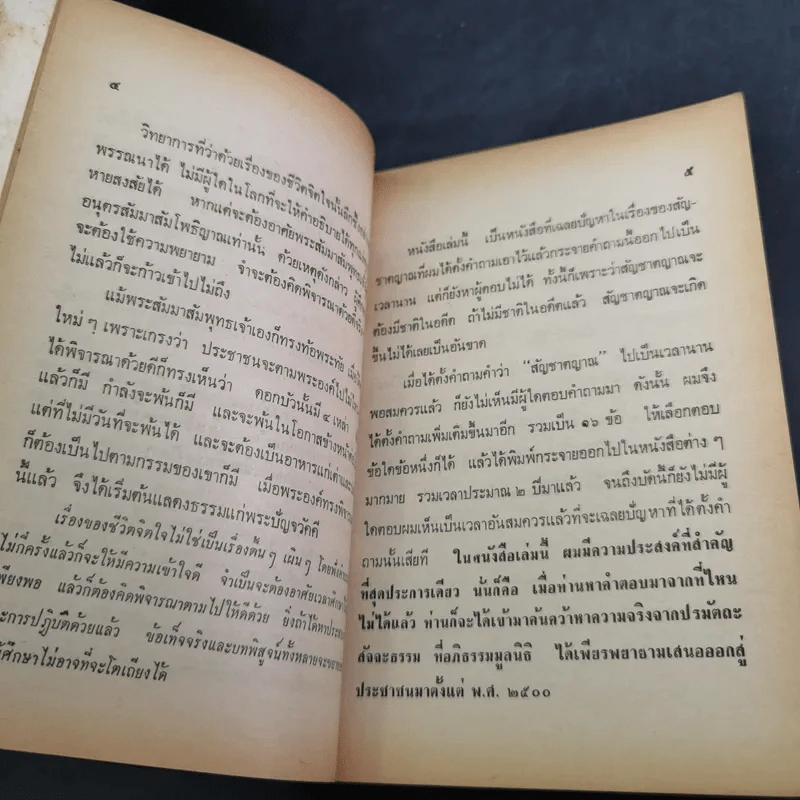 ๔
วิทยาการที่ว่าด้วยเรื่องของชีวิตจิตใจนั้นลึกซึ้ง
พรรณนาได้ ไม่มีผู้ใดในโลกที่จะให้คำอธิบายได้
หายสงสัยได้ หากแต่จะต้องอาศัยพระสัมมาสัมพุทธ
อนุตรสัมมาสัมโพธิญาณเท่านั้น ด้วยเหตุดังกล่าว
จะต้องใช้ความพยายาม จำจะต้องคิดพิจารณาด้วย
ไม่แล้วก็จะก้าวเข้าไปไม่ถึง
แม้พระสัมมาสัมพุทธเจ้าเองก็ทรงท้อพระทัย
ใหม่ ๆ เพราะเกรงว่า ประชาชนจะตามพระองค์ไปไม่
ได้พิจารณาด้วยดีก็ทรงเห็นว่า ดอกบัวนั้นมี ๔ เหล่า
แล้วก็มี กำลังจะพ้นก็มี และจะพ้นในโอกาสข้างหน้า
แต่ที่ไม่มีวันที่จะพ้นได้ และจะต้องเป็นอาหารแก่เต่าและ
ก็ต้องเป็นไปตามกรรมของเขาก็มี เมื่อพระองค์ทรงพิจาร
นี้แล้ว จึงได้เริ่มต้นแสดงธรรมแก่พระปัญจวัคคี
เรื่องของชีวิตจิตใจไม่ใช่เป็นเรื่องตื้น ๆ เผิน ๆ โดยฟัง
ไม่กี่ครั้งแล้วก็จะให้มีความเข้าใจดี จำเป็นจะต้องอาศัยเวลาศึกษา
เพียงพอ แล้วก็ต้องคิดพิจารณาตามไปให้ดีด้วย ยิ่งถ้าได้
การปฏิบัติด้วยแล้ว ข้อเท็จจริงและบทพิสูจน์ทั้งหลายจะ
ศึกษาไม่อาจที่จะโต้เถียงได้
๕
หนังสือเล่มนี้ เป็นหนังสือที่เฉลยปัญหาในเรื่องของสัญ-
ชาตญาณที่ผมได้ตั้งคำถามเอาไว้แล้วกระจายคำถามนี้ออกไปเป็น
เวลานาน แต่ก็ยังหาผู้ตอบไม่ได้ ทั้งนี้ก็เพราะว่าสัญชาตญาณจะ
ต้องมีชาติในอดีต ถ้าไม่มีชาติในอดีตแล้ว สัญชาตญาณจะเกิด
ขึ้นไม่ได้เลยเป็นอันขาด
เมื่อได้ตั้งคำถามคำว่า “สัญชาตญาณ” ไปเป็นเวลานาน
พอสมควรแล้ว ก็ยังไม่เห็นมีผู้ใดตอบคำถามมา ดังนั้น ผมจึง
ได้ตั้งคำถามเพิ่มเติมขึ้นมาอีก รวมเป็น ๑๖ ข้อ ให้เลือกตอบ
ข้อใดข้อหนึ่งก็ได้ แล้วได้พิมพ์กระจายออกไปในหนังสือต่าง ๆ
มากมาย รวมเวลาประมาณ ๒ ปีมาแล้ว จนถึงบัดนี้ก็ยังไม่มีผู้
ใดตอบผมเห็นเป็นเวลาอันสมควรแล้วที่จะเฉลยปัญหาที่ได้ตั้งคำ
ถามนั้นเสียที ในหนังสือเล่มนี้ ผมมีความประสงค์ที่สำคัญ
ที่สุดประการเดียว นั้นก็คือ เมื่อท่านหาคำตอบมาจากที่ไหน
ไม่ได้แล้ว ท่านก็จะได้เข้ามาค้นคว้าหาความจริงจากปรมัตถะ
สัจจะธรรม ที่อภิธรรมมูลนิธิ ได้เพียรพยายามเสนอออกสู่
ประชาชนมาตั้งแต่ พ.ศ. ๒๕๐๐